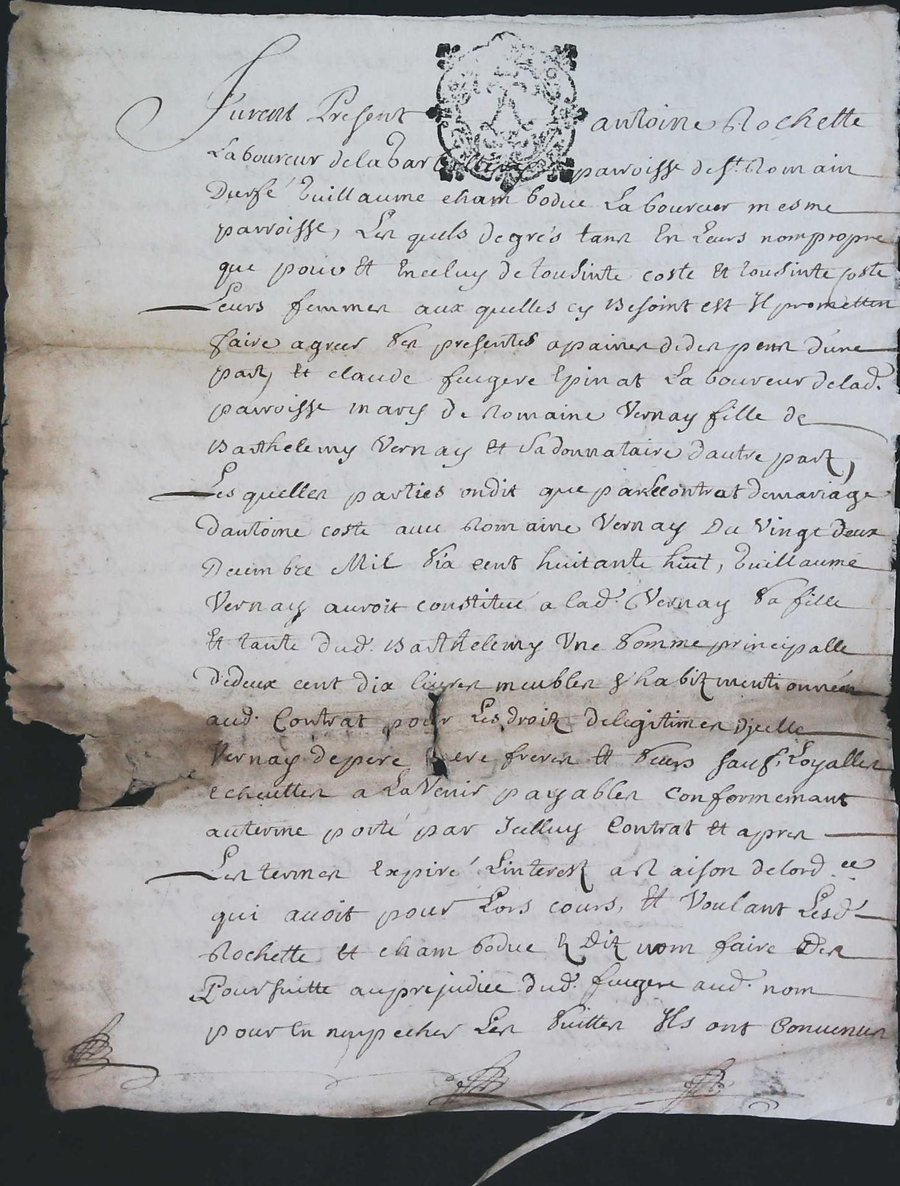 Furent Present antoine Rochette
Laboureur de la parroisse de st. Romain
Durfé Guillaume chambodue Laboureur mesme
parroisse, Les quels de grés tant En Leurs nom propre
que pour Et En celuy de tousinte coste Et tousinte coste
Leurs femmes aux quelles cy Besoint est Il promettent
faire agreer Ses presentes apaines de des pens d'une
part, Et claude fugere Epinat Laboureur delad.
parroisse mary de Romaine Vernay fille de
Barthelemy Vernay et Sa donnataire d'autre part,
Lesquelles parties ondit que par Le contrat de mariage
dantoine coste avec Romaine Vernay Du Vingt Deux
Decembre Mil Six cent huitante huit, Guillaume
Vernay auroit constitué a lad. Vernay Sa fille
Et tante dud. Barthelemy Une Somme principalle
De deux cent dix livres meubles & habit mentionnées
aud. Contrat pour Les droit de legitimes D'jcelle
Vernay de pere mere freres Et Seurs sauf Loyalles
echeuttes a La Venir payables Conformemant
au terme porté par Jcelluy Contrat Et apres
Les termes Expiré Linterest a Raison de lord.ce
qui avoit pour Lors cours, Et Voulant Lesd.
Rochette Et chambodue Es dit nom faire Des
Poursuitte au prejudice dud. fugere aud. nom
pour En n'enpecher Les Suittes Ils ont Convenus